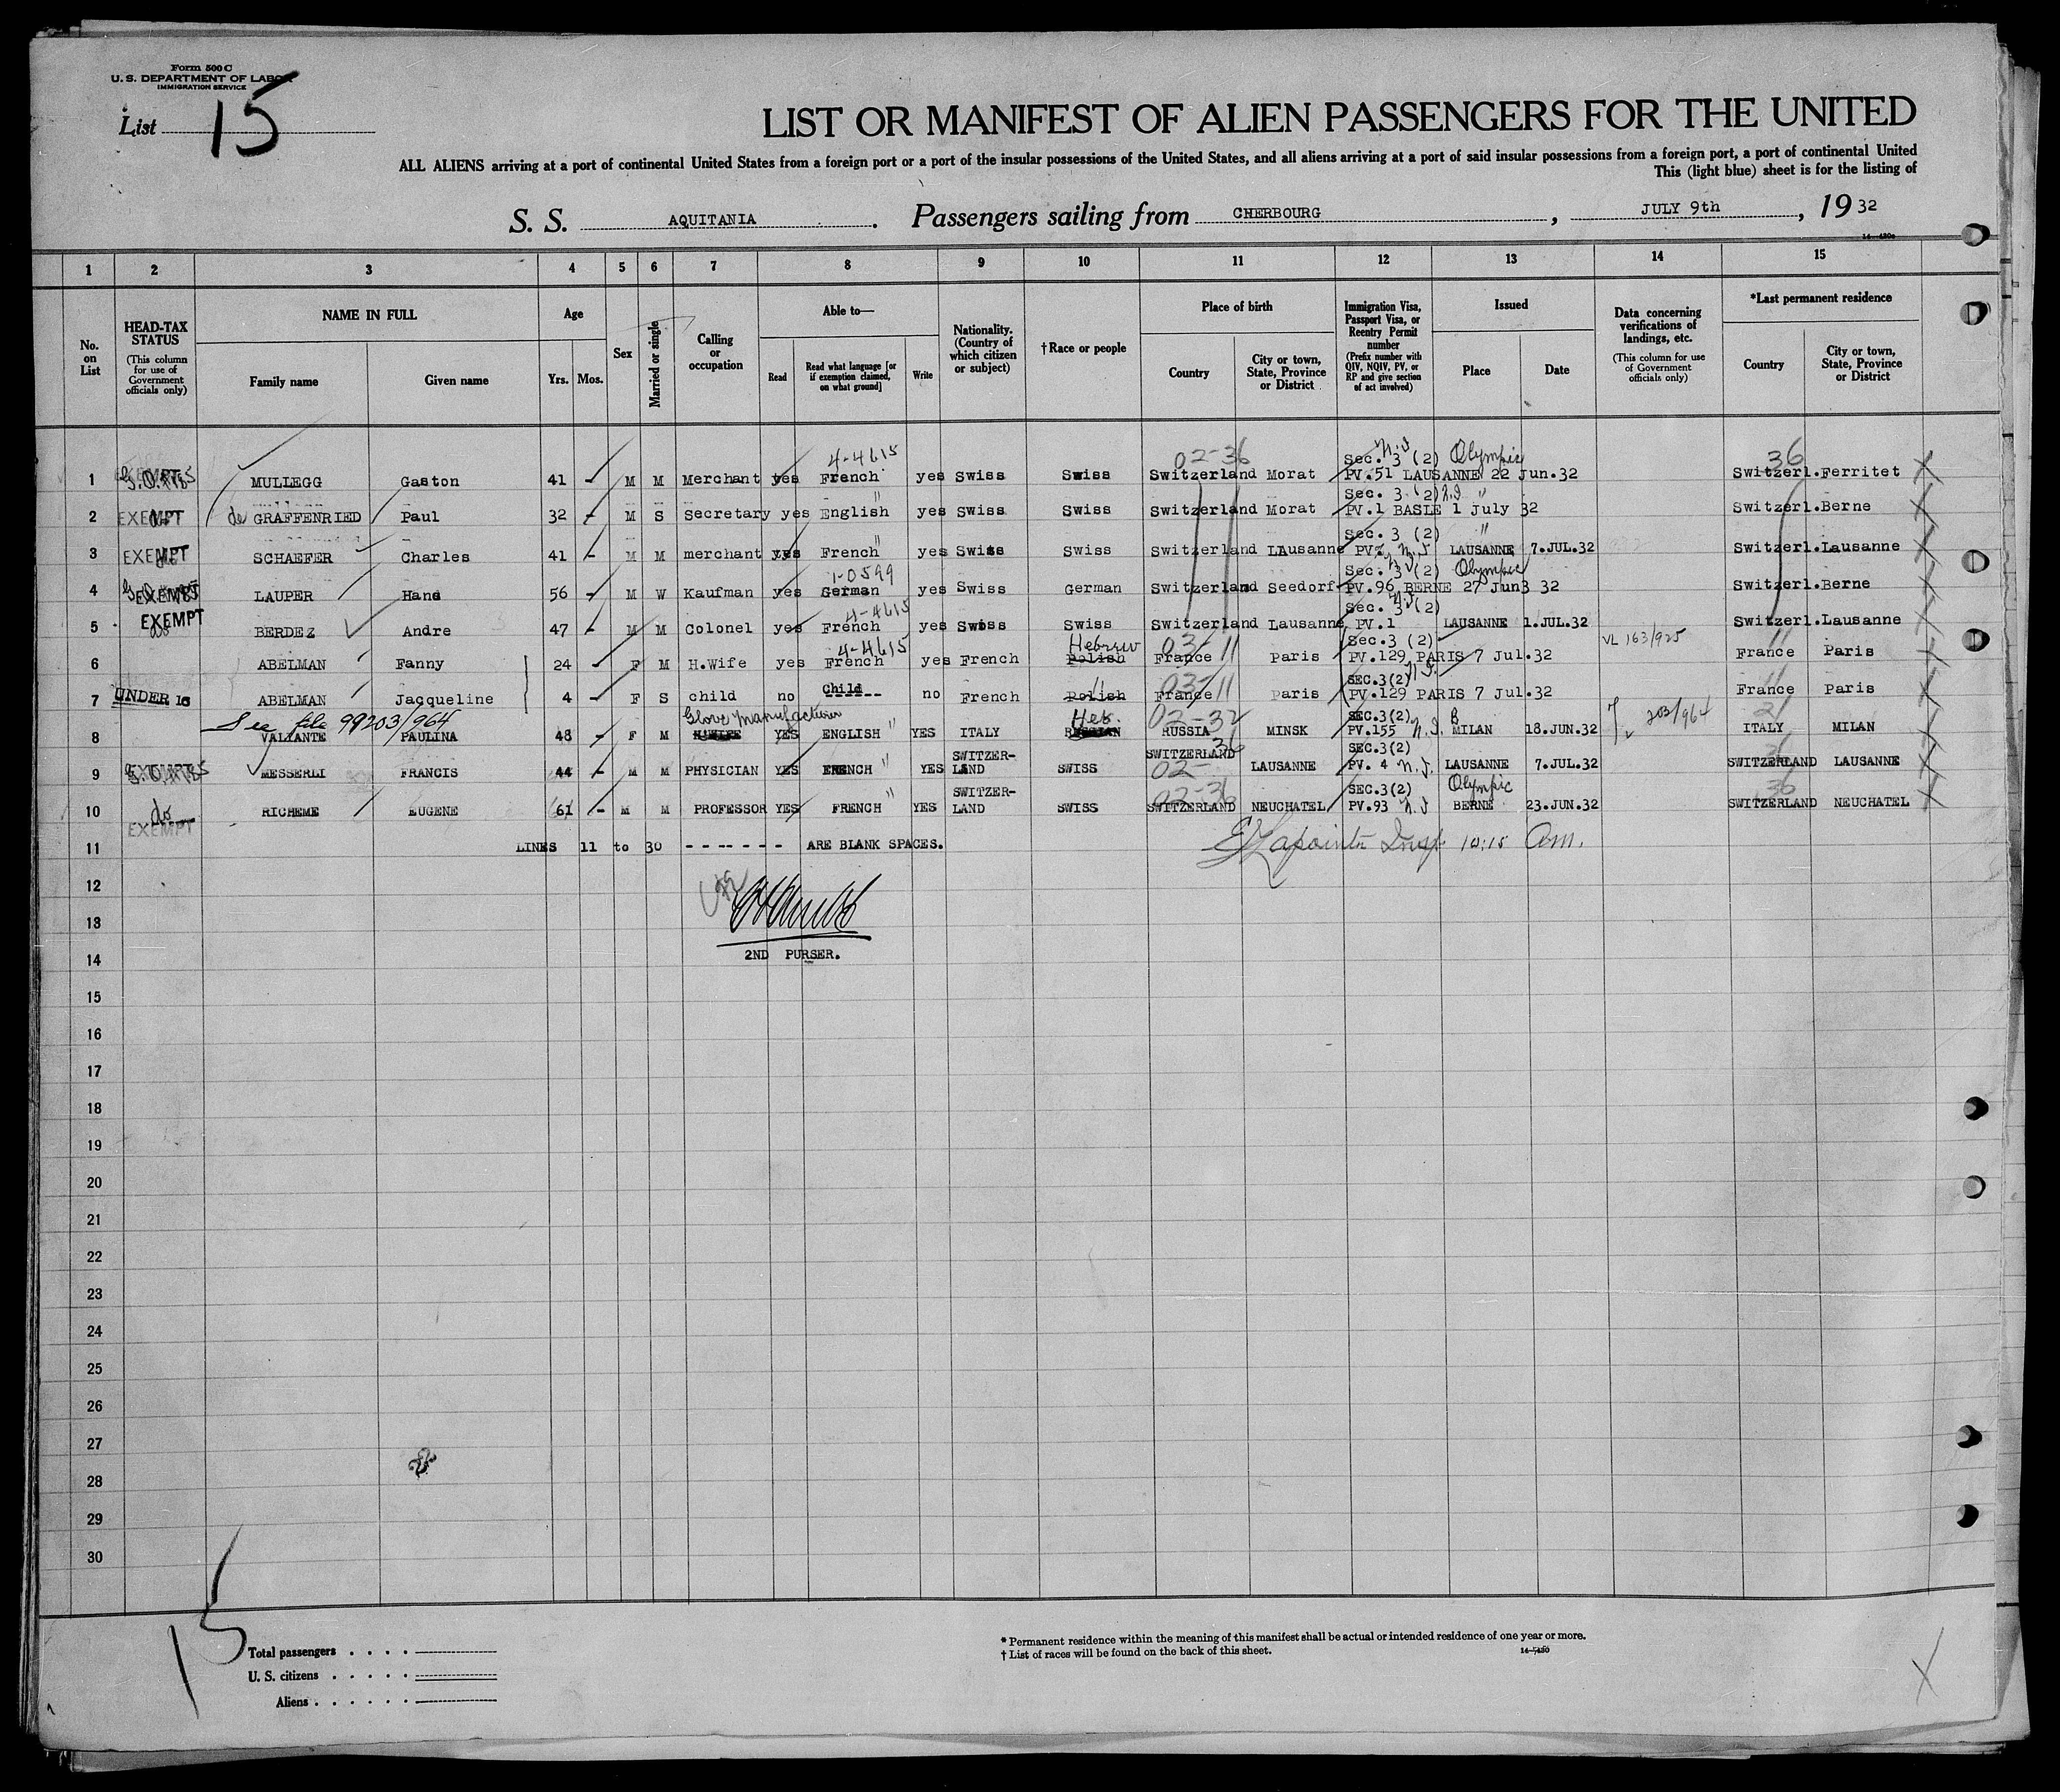 Form 500 C
U. S. DEPARTMENT OF LABOR
IMMIGRATION SERVICE
List 15
LIST OR MANIFEST OF ALIEN PASSENGERS FOR THE UNITED
ALL ALIENS arriving at a port of continental United States from a foreign port or a port of the insular possessions of the United States, and all aliens arriving at a port of said insular possessions from a foreign port, a port of continental United
This (light blue) sheet is for the listing of
S. S. AQUITANIA. Passengers sailing from CHERBOURG, JULY 9th, 19 32
1 2 3 4 5 6 7 8 9 10 11 12 13 14 15
No. on List
HEAD-TAX STATUS (This column for use of Government officials only)
NAME IN FULL
Family name Given name
Age Yrs. Mos.
Sex
Married or single
Calling or occupation
Able to— Read Read what language [or if exemption claimed, on what ground] Write
Nationality. (Country of which citizen or subject)
†Race or people
Place of birth Country City or town, State, Province or District
Immigration Visa, Passport Visa, or Reentry Permit number (Prefix number with QIV, NQIV, PV, or RP and give section of act involved)
Issued Place Date
Data concerning verifications of landings, etc. (This column for use of Government officials only)
*Last permanent residence Country City or town, State, Province or District
4-4615 02-36 Sec. 3 (2) Olympic 36
1 EXEMPT MULLEGG Gaston 41 M M Merchant yes French yes Swiss Swiss Switzerland Morat PV.51 LAUSANNE 22 Jun.32 Switzerl. Ferritet X
Sec. 3 (2) "
2 EXEMPT de GRAFFENRIED Paul 32 - M S Secretary yes English " yes Swiss Swiss Switzerland Morat PV.1 BASLE 1 July 32 Switzerl. Berne X
Sec. 3 (2) "
3 EXEMPT SCHAEFER Charles 41 - M M merchant yes French " yes Swiss Swiss Switzerland LAusanne PV LAUSANNE 7.JUL.32 Switzerl. Lausanne X
1-0599 Sec. 3 (2) Olympic
4 EXEMPT LAUPER Hans 56 - M W Kaufman yes German yes Swiss German Switzerland Seedorf PV.96 BERNE 27 Jun3 32 Switzerl. Berne X
EXEMPT 4-4615 Sec. 3 (2)
5 do BERDEZ Andre 47 - M M Colonel yes French yes Swiss Swiss Switzerland Lausanne PV.1 LAUSANNE 1.JUL.32 Switzerl. Lausanne X
4-4615 Hebrew 03-11 Sec.3 (2) VL 163/925 11
6 ABELMAN Fanny 24 - F M H.Wife yes French yes French Polish France Paris PV.129 PARIS 7 Jul.32 France Paris X
Child " 03-11 SEC.3(2) 11
7 UNDER 16 ABELMAN Jacqueline 4 - F S child no ----- no French Polish France Paris PV.129 PARIS 7 Jul.32 France Paris X
See file 99203/964 Glove manufacturer Heb. 02-32 SEC.3(2) 203/964 21
8 VALIANTE PAULINA 48 - F M H.WIFE YES ENGLISH " YES ITALY RUSSIAN RUSSIA MINSK PV.155 MILAN 18.JUN.32 ITALY MILAN X
SWITZERLAND 36 SEC.3(2)
9 EXEMPT MESSERLI FRANCIS 44 - M M PHYSICIAN YES FRENCH " YES SWITZER-LAND SWISS 02- LAUSANNE PV. 4 LAUSANNE 7.JUL.32 SWITZERLAND LAUSANNE X
02-36 SEC.3(2) Olympic 36
10 do EXEMPT RICHEME EUGENE 61 - M M PROFESSOR YES FRENCH " YES SWITZER-LAND SWISS SWITZERLAND NEUCHATEL PV.93 BERNE 23.JUN.32 SWITZERLAND NEUCHATEL X
11 LINES 11 to 30 - - - - - - - ARE BLANK SPACES. Lapointe Insp. 10:15 am.
12
13
14 2ND PURSER.
15
16
17
18
19
20
21
22
23
24
25
26
27
28
29
30
15
Total passengers . . . .
U. S. citizens . . . . .
Aliens . . . . . .
* Permanent residence within the meaning of this manifest shall be actual or intended residence of one year or more.
† List of races will be found on the back of this sheet.
X